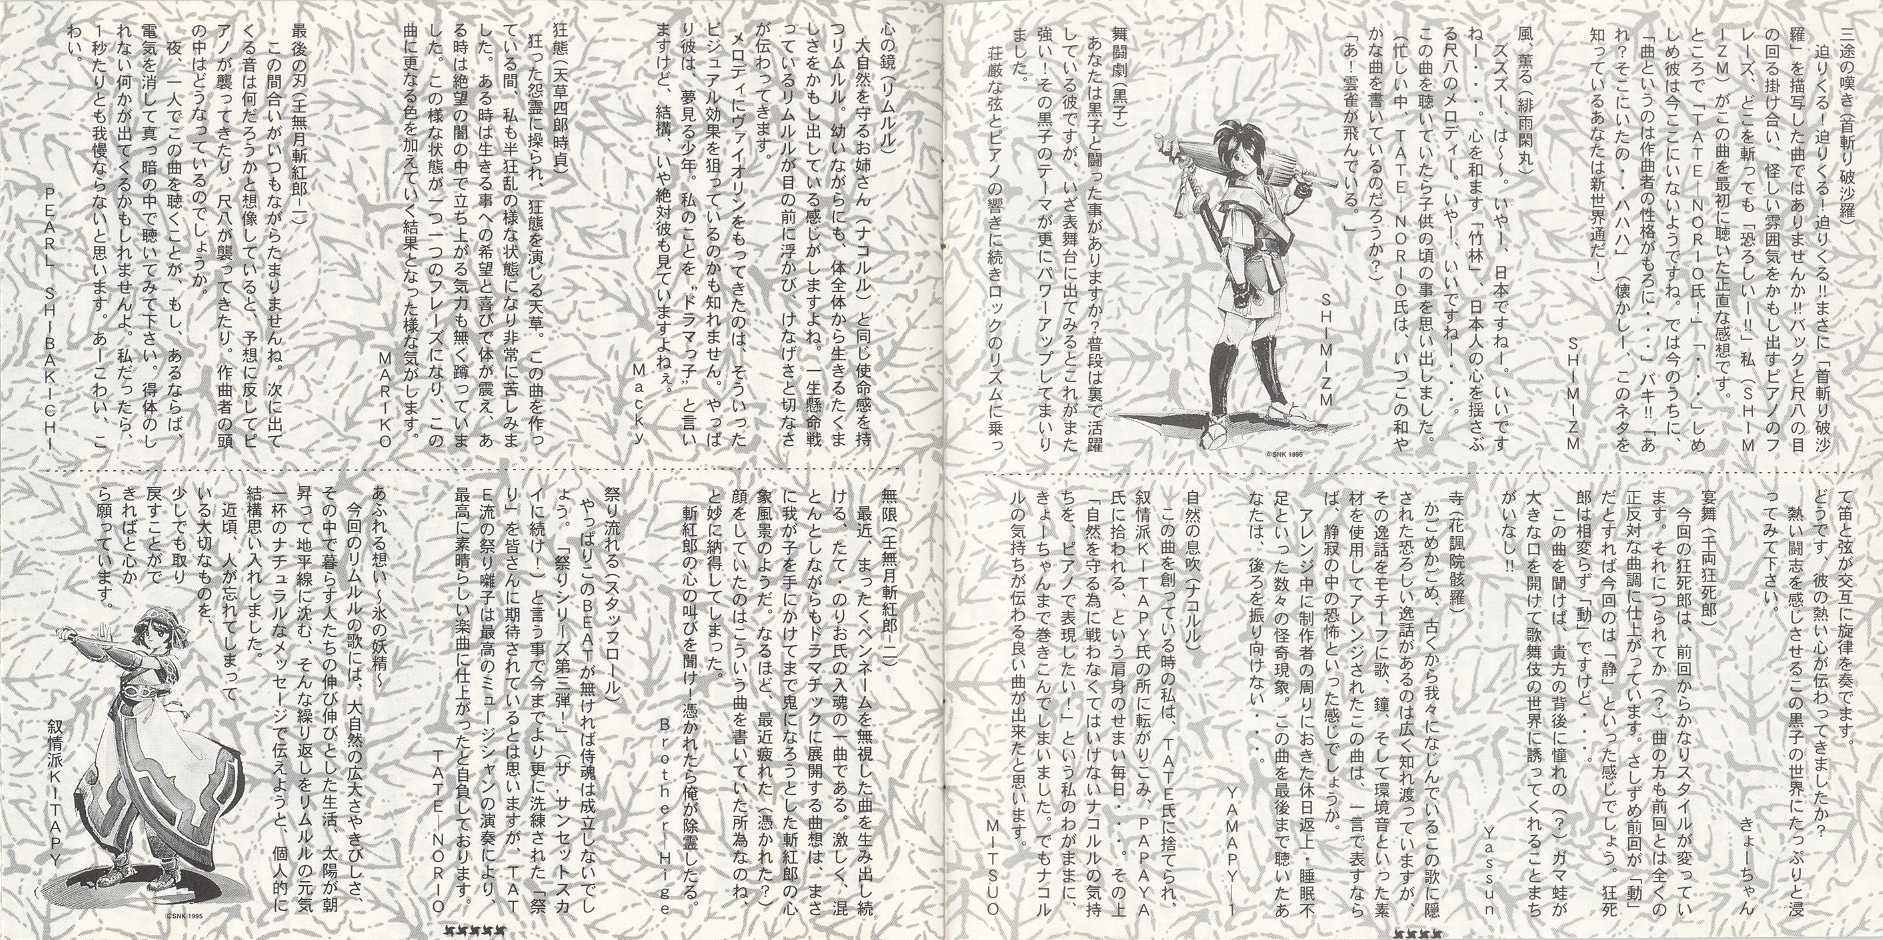 三途の嘆き(首斬り破沙羅)
迫りくる!迫りくる!迫りくる!!まさに「首斬り破沙
羅」を描写した曲ではありませんか!!バックと尺八の目
の回る掛け合い、怪しい雰囲気をかもし出すピアノのフ
レーズ、どこを斬っても「恐ろしいー!!」私(SHIM
IZM)がこの曲を最初に聴いた正直な感想です。
ところで「TATE―NORIO氏!」「・・・」しめ
しめ彼は今ここにいないようですね。では今のうちに、
「曲というのは作曲者の性格がもろに・・・」バキ!!「あ
れ?そこにいたの・・ハハハ」(懐かしー、このネタを
知っているあなたは新世界通だ!)
SHIMIZM
風、薫る(緋雨閑丸)
ズズズー、は〜〜。いやー、日本ですねー。いいです
ねー・・・。心を和ます「竹林」、日本人の心を揺さぶ
る尺八のメロディー。いやー、いいですねー・・・。
この曲を聴いていたら子供の頃の事を思い出しました。
(忙しい中、TATE―NORIO氏は、いつこの和や
かな曲を書いているのだろうか?)
「あ!雲雀が飛んでいる。」
SHIMIZM
©SNK 1995
舞闘劇(黒子)
あなたは黒子と闘った事がありますか?普段は裏で活躍
している彼ですが、いざ表舞台に出てみるとこれがまた
強い!その黒子のテーマが更にパワーアップしてまいり
ました。
荘厳な弦とピアノの響きに続きロックのリズムに乗っ
て笛と弦が交互に旋律を奏でます。
どうです、彼の熱い心が伝わってきましたか?
熱い闘志を感じさせるこの黒子の世界にたっぷりと浸
ってみて下さい。
きょーちゃん
宴舞(千両狂死郎)
今回の狂死郎は、前回からかなりスタイルが変ってい
ます。それにつられてか(?)曲の方も前回とは全くの
正反対な曲調に仕上がっています。さしずめ前回が「動」
だとすれば今回のは「静」といった感じでしょう。狂死
郎は相変らず「動」ですけど・・・。
この曲を聞けば、貴方の背後に憧れの(?)ガマ蛙が
大きな口を開けて歌舞伎の世界に誘ってくれることまち
がいなし!!
Yassun
寺(花諷院骸羅)
かごめかごめ、古くから我々になじんでいるこの歌に隠
された恐ろしい逸話があるのは広く知れ渡っていますが、
その逸話をモチーフに歌、鐘、そして環境音といった素
材を使用してアレンジされたこの曲は、一言で表すなら
ば、静寂の中の恐怖といった感じでしょうか。
アレンジ中に制作者の周りにおきた休日返上・睡眠不
足といった数々の怪奇現象。この曲を最後まで聴いたあ
なたは、後ろを振り向けない・・・。
YAMAPY―1
自然の息吹(ナコルル)
「この曲を創っている時の私は、TATE氏に捨てられ、
叙情派KITAPY氏の所に転がりこみ、PAPAYA
氏に拾われる、という肩身のせまい毎日・・・。その上
「自然を守る為に戦わなくてはいけないナコルルの気持
ちを、ピアノで表現したい!」という私のわがままに、
きょーちゃんまで巻きこんでしまいました。でもナコル
ルの気持ちが伝わる良い曲が出来たと思います。
MITSUO
心の鏡(リムルル)
大自然を守るお姉さん(ナコルル)と同じ使命感を持
つリムルル。幼いながらにも、体全体から生きるたくま
しさをかもし出している感じがしますよね。一生懸命戦
っているリムルルが目の前に浮かび、けなげさと切なさ
が伝わってきます。
メロディにヴァイオリンをもってきたのは、そういった
ビジュアル効果を狙っているのかも知れません。やっぱ
り彼は、夢見る少年。私のことを〝ドラマっ子〟と言い
ますけど、結構、いや絶対彼も見ていますよねぇ。
Macky
狂態(天草四郎時貞)
狂った怨霊に操られ、狂態を演じる天草。この曲を作っ
ている間、私も半狂乱の様な状態になり非常に苦しみま
した。ある時は生きる事への希望と喜びで体が震え、あ
る時は絶望の闇の中で立ち上がる気力も無く蹲っていま
した。この様な状態が一つ一つのフレーズになり、この
曲に更なる色を加えていく結果となった様な気がします。
MARIKO
最後の刃(壬無月斬紅郎―二)
この間合いがいつもながらたまりませんね。次に出て
くる音は何だろうかと想像していると、予想に反してピ
アノが襲ってきたり、尺八が襲ってきたり。作曲者の頭
の中はどうなっているのでしょうか。
夜、一人でこの曲を聴くことが、もし、あるならば、
電気を消して真っ暗の中で聴いてみて下さい。得体のし
れない何かが出てくるかもしれませんよ。私だったら、
1秒たりとも我慢ならないと思います。あーこわい、こ
わい。
PEARL SHIBAKICHI
無限(壬無月斬紅郎―二)
最近、まったくペンネームを無視した曲を生み出し続
ける、たて・のりお氏の入魂の一曲である。激しく、混
とんとしながらもドラマチックに展開する曲想は、まさ
に我が子を手にかけてまで鬼になろうとした斬紅郎の心
象風景のようだ。なるほど、最近疲れた(憑かれた?)
顔をしていたのはこういう曲を書いていた所為なのね、
と妙に納得してしまった。
斬紅郎の心の叫びを聞け!憑かれたら俺が除霊したる。
Brother―Hige
祭り流れる(スタッフロール)
やっぱりこのBEATが無ければ侍魂は成立しないでし
ょう。「祭りシリーズ第三弾!」(ザ・サンセットスカ
イに続け!)と言う事で今までより更に洗練された「祭
り」を皆さんに期待されているとは思いますが、TAT
E流の祭り囃子は最高のミュージシャンの演奏により、
最高に素晴らしい楽曲に仕上がったと自負しております。
TATE―NORIO
あふれる想い〜氷の妖精〜
今回のリムルルの歌には、大自然の広大さやきびしさ、
その中で暮らす人たちの伸び伸びとした生活、太陽が朝
昇って地平線に沈む、そんな繰り返しをリムルルの元気
一杯のナチュラルなメッセージで伝えようと、個人的に
結構思い入れしました。
近頃、人が忘れてしまって
いる大切なものを、
少しでも取り
戻すことがで
きればと心か
ら願っています。
叙情派KITAPY
©SNK 1995